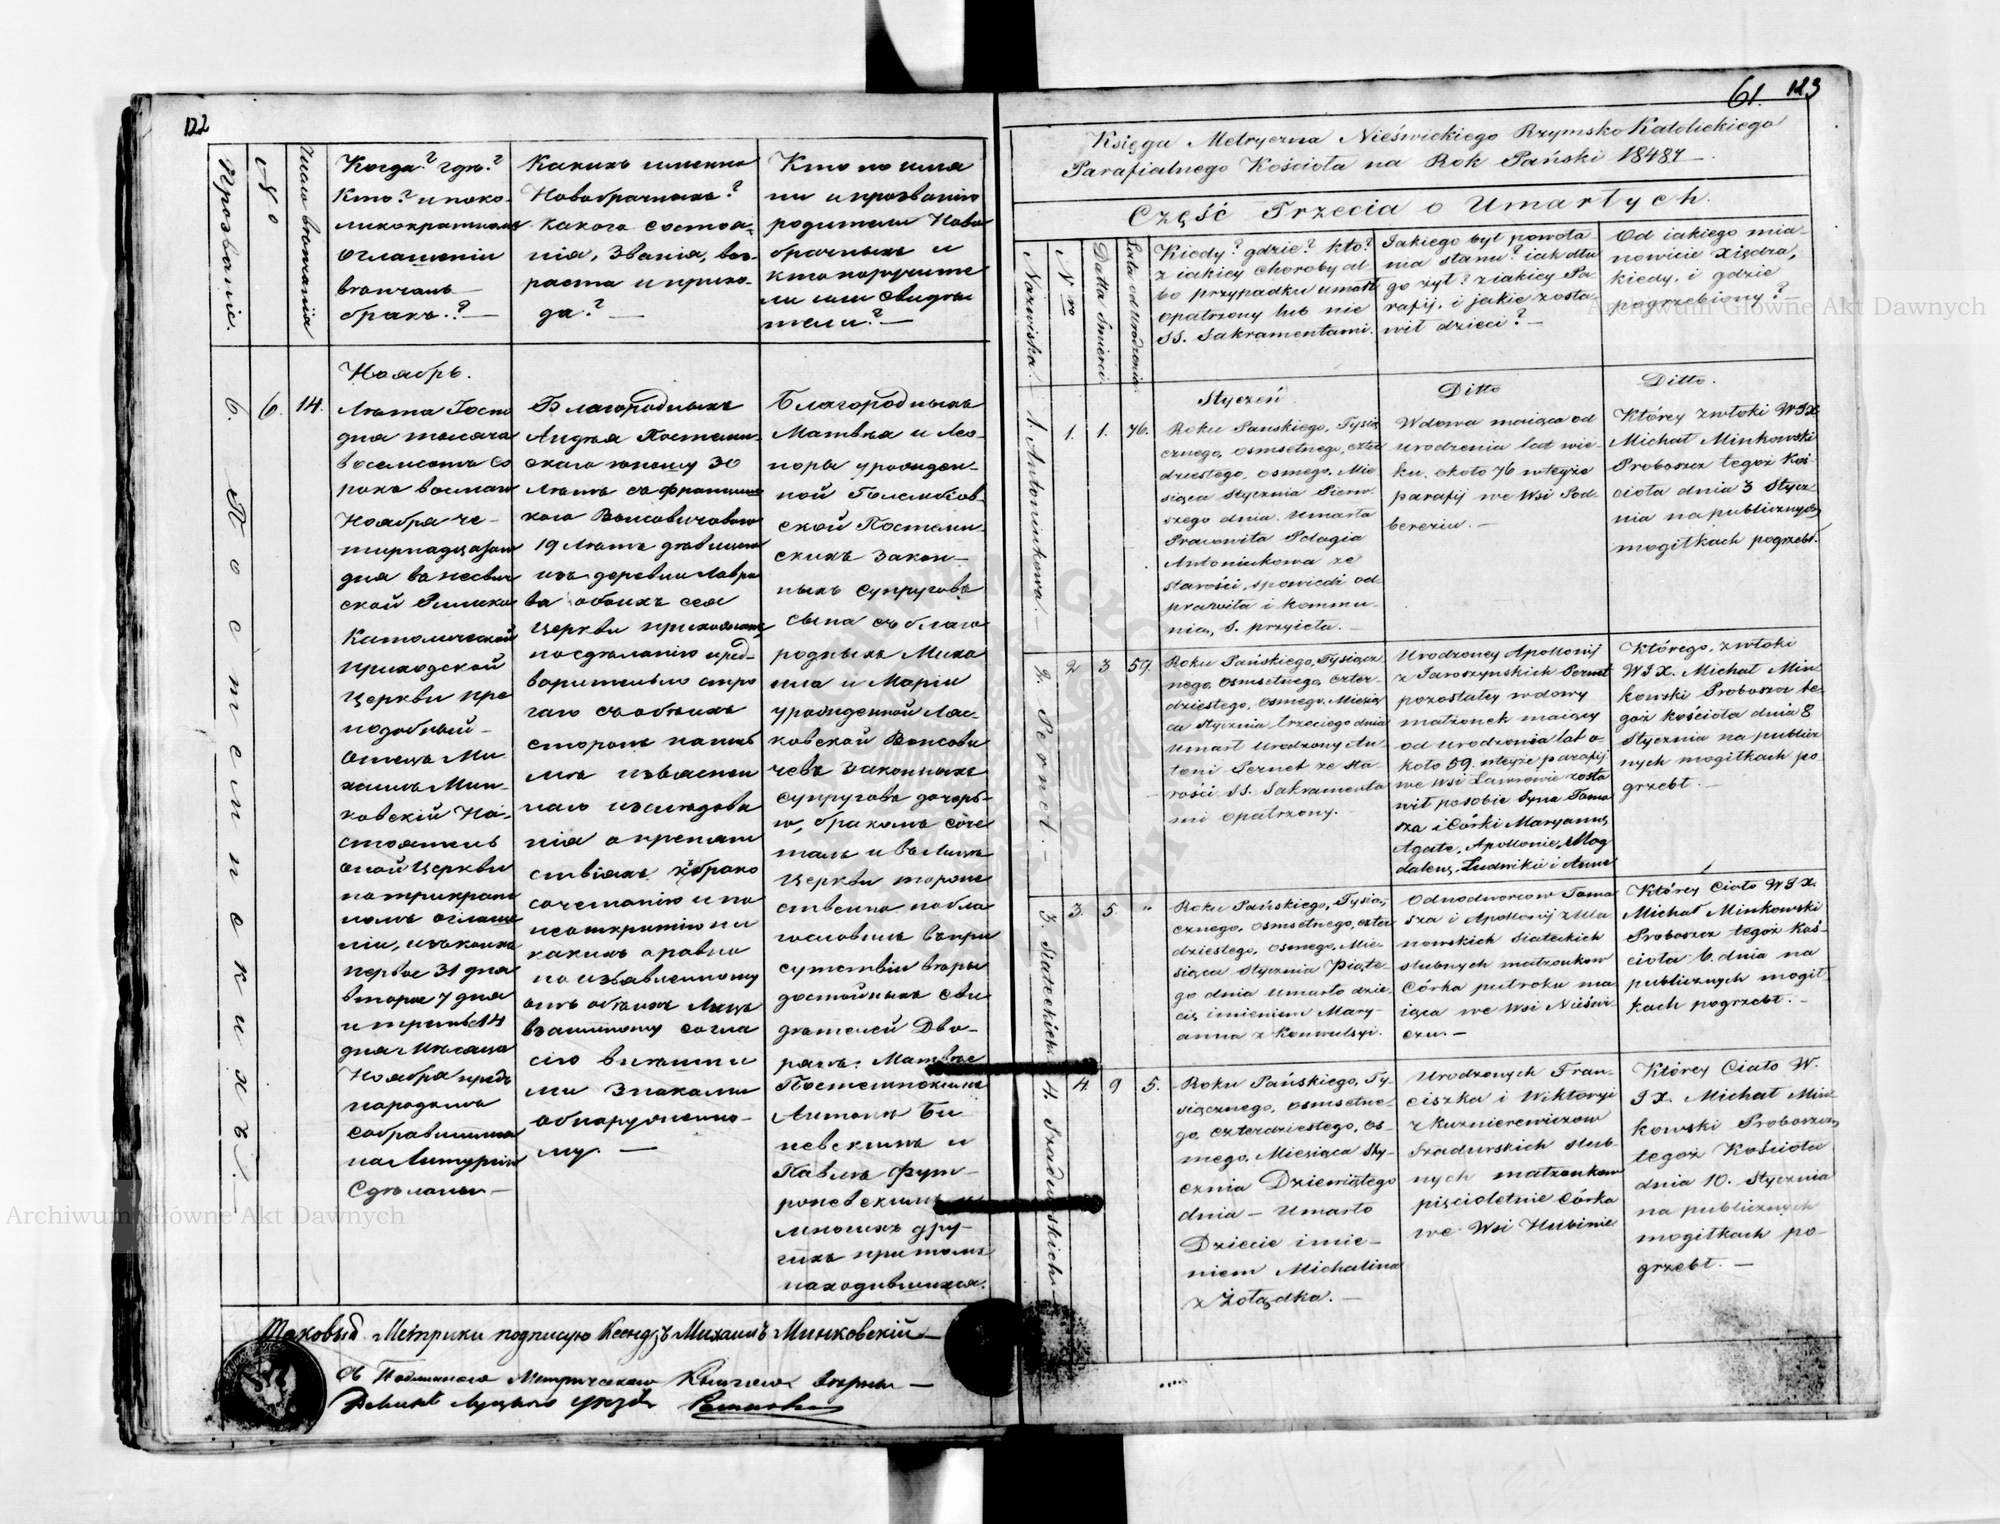 122
Прозваніе.
№
Число вѣнчанія
Когда? гдѣ?
Кто? и поко-
ликократномъ
оглашеніи
вѣнчалъ
бракъ.? —
Какихъ именно
Новобрачныхъ?
какого состоя-
нія, званія, воз-
раста и прихо-
да? —
Кто по име
ни и прозванію
родители Ново
брачныхъ и
кто поручите
ли или свидѣ
тели? —
6. Постемпскихъ.
6.
14.
Ноябрь.
Лѣта Госпо
дня тысяча
восемсотъ со
рокъ восмаго
Ноября че-
тырнадцатаго
дня въ несвич
ской Римско
Католической
приходской
Церкви пре
подобный
отецъ Ми-
хаилъ Мин-
ковскій На-
стоятель
оной Церкви
по трикрат
номъ оглаше
ніи, изъ коихъ
первое 31 дня
второе 7 дня
и третье 14
дня Мѣсяца
Ноября предъ
народомъ
собравшимся
на Литургію
Сдѣланы —
Благородныхъ
Андрея Постемп-
скаго юношу 30
лѣтъ съ Франциш
кою Вонсовичовою
19 лѣтъ дѣвицею
изъ деревни Лавро
ва обоихъ сея
Церкви прихожанъ,
по сдѣланію пред-
варительно стро
гаго съ обоихъ
сторонъ
о препят
ствіяхъ къ брако
сочетанію и по
неоткрытію ни
какихъ а равно
по изъявленному
отъ обоихъ лицъ
взаимному согла
сію внѣшни
ми знаками
обнаруженно-
му. —
Благородныхъ
Матвѣя и Лео-
норы урожден-
ной Голембіов-
ской Постемп
скихъ закон-
ныхъ супруговъ
сына съ благо
родныхъ Миха
ила и Маріи
урожденной Лас-
ковской Вонсови
чевъ законныхъ
супруговъ дочерь-
ю, бракомъ соче
талъ и въ лицѣ
Церкви торже
ственно побла
гословилъ въ при
сутствіи вѣры
достойныхъ сви
дѣтелей Дво-
рянъ: Матвѣя
Постемпскимъ
Антона Би
невскимъ и
Павла
многихъ дру-
гихъ притомъ
находившихся.
Таковый Метрики подписую Ксендзъ Михаилъ Минковскій —
Съ Подлинного Метрического Книгою вѣрны —
Деканъ Луцкого уѣзда
61. 123
Księga Metryczna Nieświckiego Rzymsko Katolickiego
Parafialnego Kościoła na Rok Pański 1848ty —.
Część Trzecia o Umarłych.
Nazwiska.
Nro
Datta Śmierci
Lata od Urodzenia.
Kiedy? gdzie? kto?
z iakiey choroby al
bo przypadku umarł
opatrzony lub nie
SS. Sakramentami.
Jakiego był powoła
nia stanu? iak dłu
go żył? z iakiey Pa
rafij, i jakie zosta
wił dzieci? —
Od iakiego mia-
nowicie Xiędza,
kiedy, i gdzie
pogrzebiony? —
1. Antoniukowa.
1.
1.
76.
Styczeń
Roku Pańskiego, Tysią
cznego, osmsetnego, czter
dziestego, osmego, Mie
siąca Stycznia Pierw-
szego dnia. Umarła
Pracowita Pelagia
Antoniukowa ze
starości, spowiedź od-
prawiła i Kommu-
nią, S. przyięła. —
Ditto
Wdowa maiąca od
urodzenia lat wie-
ku, około 76 w teyże
parafij we Wsi Pod-
bereziu. —
Ditto.
Którey zwłoki WJX
Michał Minkowski
Proboszcz tegoż Koś
cioła dnia 3 Stycz-
nia na publicznych
mogiłkach pogrzebł.
2. Pernet. —
2
3
59.
Roku Pańskiego, Tysiącz
nego, osmsetnego, czter-
dziestego, osmego, Miesią
ca Stycznia, trzeciego dnia
Umarł Urodzony An
toni Pernet ze sta
rości SS. Sakramenta
mi opatrzony. —
Urodzoney Apollonij
z Jaroszyńskich Pernet
pozostałey wdowy
małżonek maiący
od urodzenia lat o-
koło 59. w teyże parafij
we Wsi Ławrowie zosta
wił po sobie Syna Toma
sza i Córki Maryannę
Agatę, Apollonię, Mag
dalenę, Ludwikię i Annę
Którego, zwłoki
WJX. Michał Min
kowski Proboszcz te-
goż Kościoła dnia 8
Stycznia na publicz
nych mogiłkach po-
grzebł. —
3. Siateckich.
3.
5
"
Roku Pańskiego, Tysią,
cznego, osmsetnego, czter
dziestego, osmego, Mie-
siąca Stycznia Piąte-
go dnia umarło dzie-
cię imieniem Mary-
anna z Konwulsyi.
Odnodworców Toma
sza i Apollonij z Ula
nowskich Siateckich
ślubnych małżonków
Córka puł roku ma
iąca we Wsi Nieświ-
czu. —
Którey Ciało WJX.
Michał Minkowski
Proboszcz tegoż Koś-
cioła 6. dnia na
publicznych mogił-
kach pogrzebł. —
4. Szadurskich —
4.
9
5.
Roku Pańskiego, Ty-
siącznego, osmsetne-
go, czterdziestego, os-
mego, Miesiąca Sty-
cznia Dziewiątego
dnia — Umarło
Dziecie imie-
niem Michalina
z Żołądka. —
Urodzonych Fran-
ciszka i Wiktoryi
z Kuzmierewiczow
Szadurskich ślub-
nych małżonków
pięcioletnie Córka
we Wsi Hubinie
Którey Ciało W.
JX. Michał Min
kowski Proboszcz
tegoż Kościoła
dnia 10. Stycznia
na publicznych
mogiłkach po-
grzebł. —
Archiwum Główne Akt Dawnych
Archiwum Główne Akt Dawnych